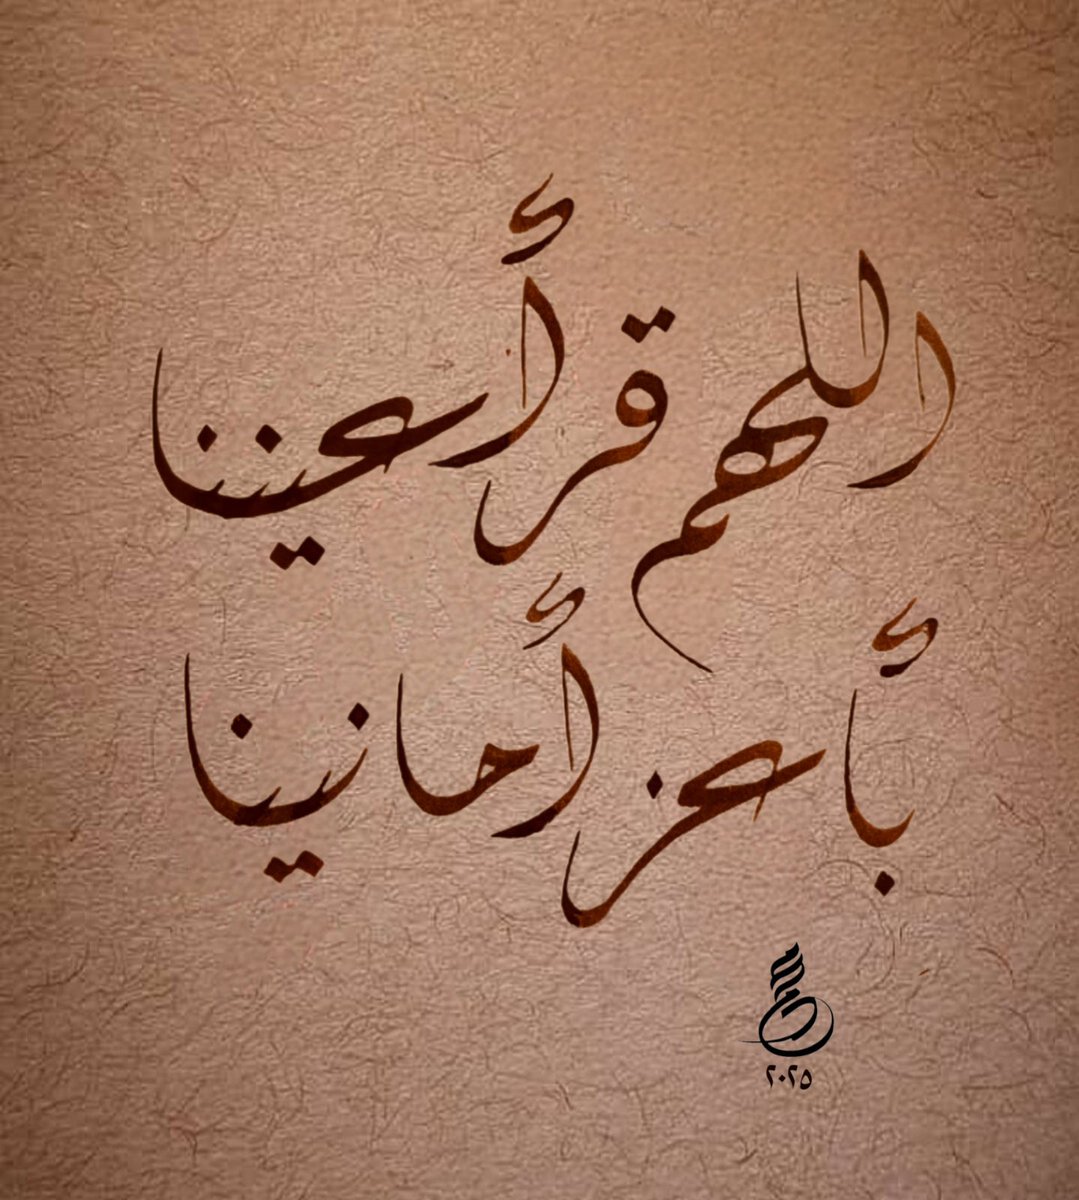 اللهم قر أعيننا
بأعز أمانينا
٢٠٢٥